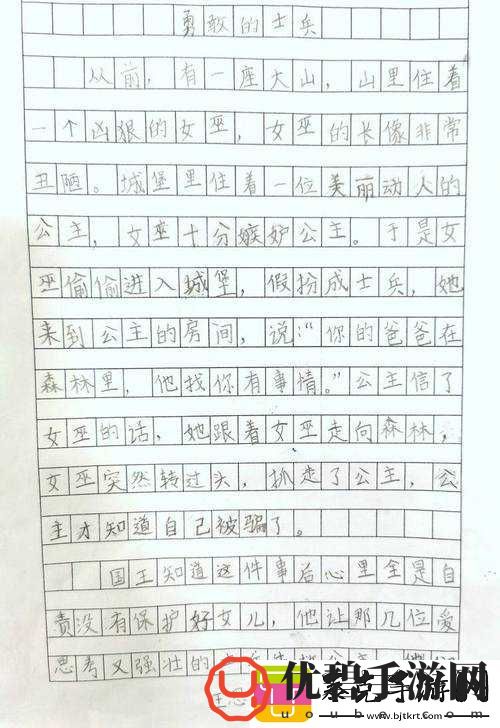 勇敢的士兵
从前，有一座大山，山里住着
一个凶狠的女巫，女巫的长像非常
丑陋。城堡里住着一位美丽动人的
公主，女巫十分嫉妒公主。于是女
巫偷偷进入城堡，假扮成士兵，她
来到公主的房间，说：“你的爸爸在
森林里，他找你有事情。”公主信了
女巫的话，她跟着女巫走向森林，
女巫突然转过头，抓走了公主，公
主才知道自己被骗了。
国王知道这件事后心里全是自
责没有保护好女儿，他让那几位爱
思考又强壮的
优碧手游网